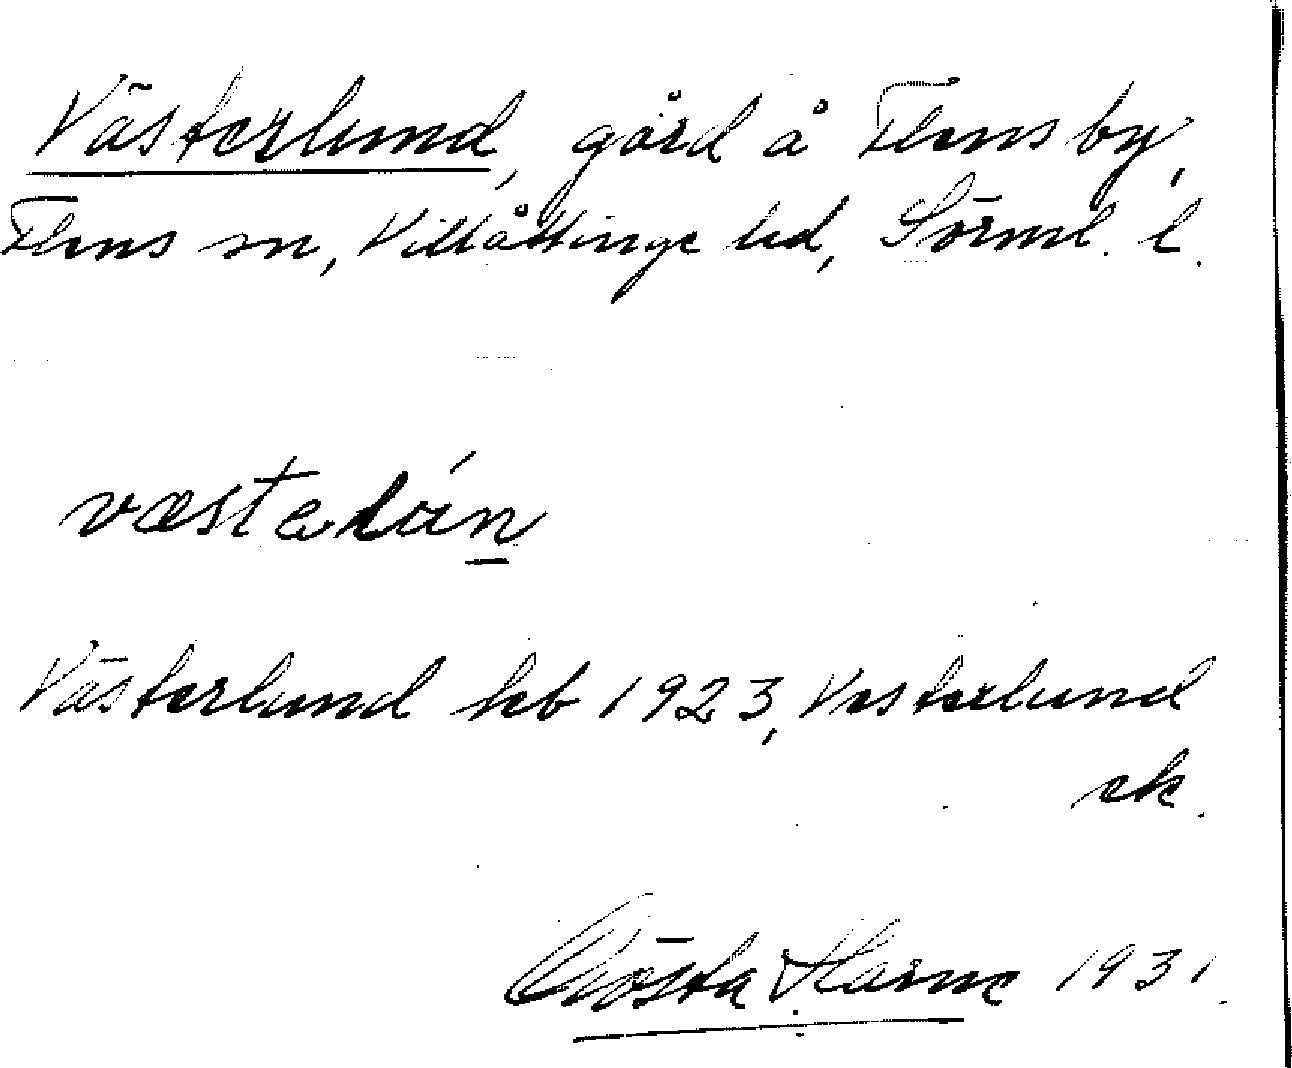 Västerlund, gård å Flens by,
Flens sn, Villåttinge hd, Sörml. l.
væstalún
Västerlund hb 1923, Vesterlund
ek.
Gösta Harne 1931.